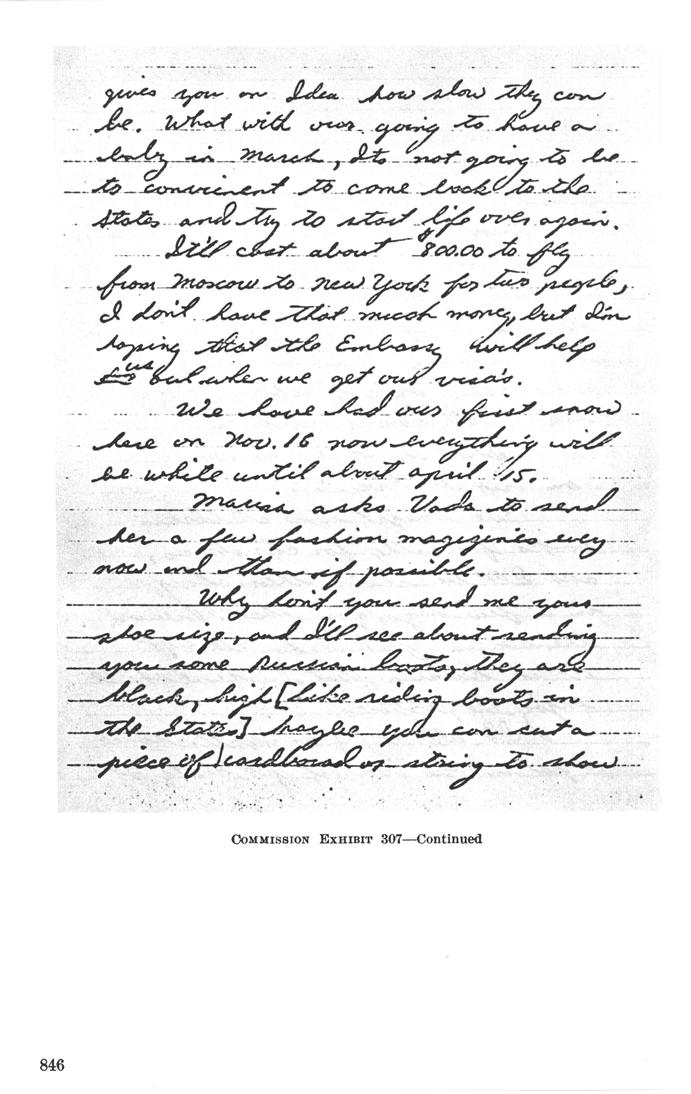 gives you on Idea how slow they can
be. What with our going to have a
baby in March, Its not going to be
to convicient to come back to the
States and try to start life over again.
It'll cost about $800.00 to fly
from Moscow to New York for two people,
I don't have that much money, but I'm
hoping that the Embassy will help
us out when we get our visa's.
We have had our first snow
here on Nov. 16 now everything will
be white until about april 15.
Marina asks Vada to send
her a few fashion magizines evey
now and than if possible.
Why don't you send me your
shoe size, and I'll see about sending
you some Russian boots, they are
black, high [like riding boots in
the States] maybe you can cut a
piece of cardboard or string to show
COMMISSION EXHIBIT 307—Continued
846